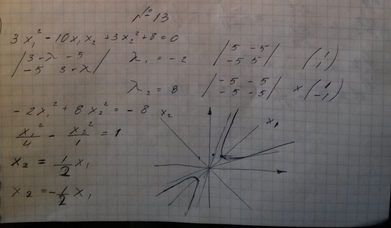 №13
3x₁² - 10x₁x₂ + 3x₂² + 8 = 0
|3-λ -5| λ₁ = -2 |5 -5| (1)
|-5 3-λ| |-5 5| (1)
λ₂ = 8 |-5 -5| x (1)
|-5 -5| (-1)
-2x₁² + 8x₂² = -8
x₁²/4 - x₂²/1 = 1
x₂ = 1/2 x₁
x₂ = -1/2 x₁
x₂
x₁